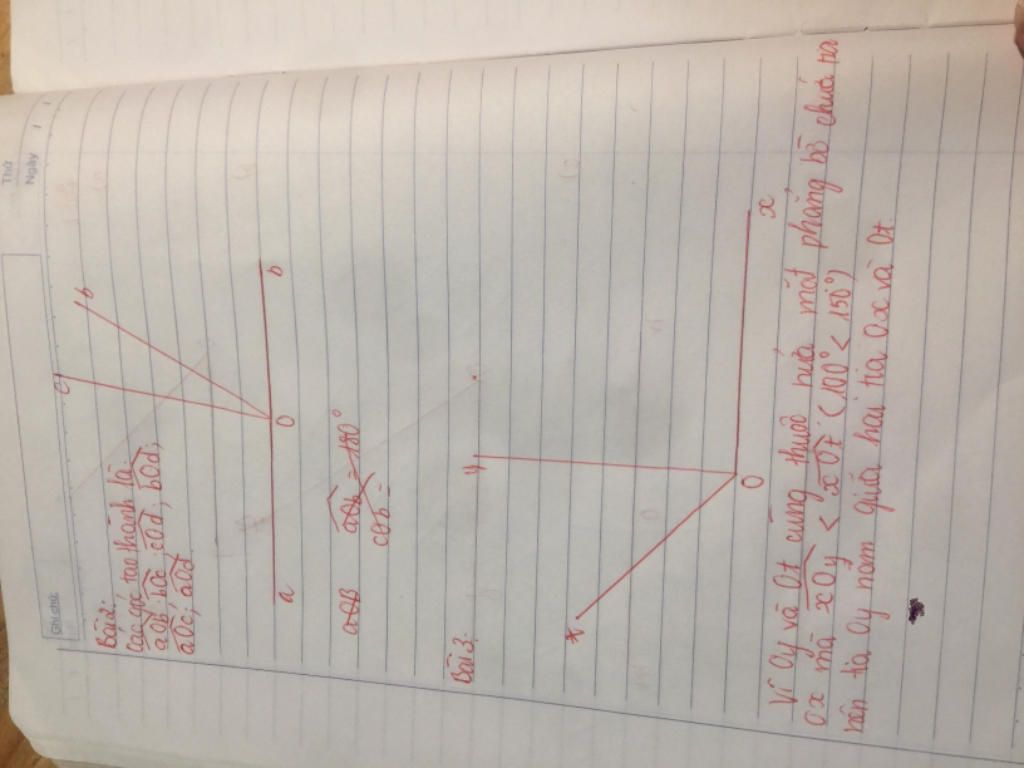 Thứ
Ngày
Ghi chú:
Bài 2:
Các góc tạo thành là:
aOb; bOc; cOd; bOd;
aOc; aOd
c
b
a
O
b
aOB
aOb = 180°
cOb =
Bài 3:
y
t
O
x
Vì Oy và Ot cùng thuộc nửa mặt phẳng bờ chứa tia
Ox mà xOy < xOt (100° < 150°)
nên tia Oy nằm giữa hai tia Ox và Ot